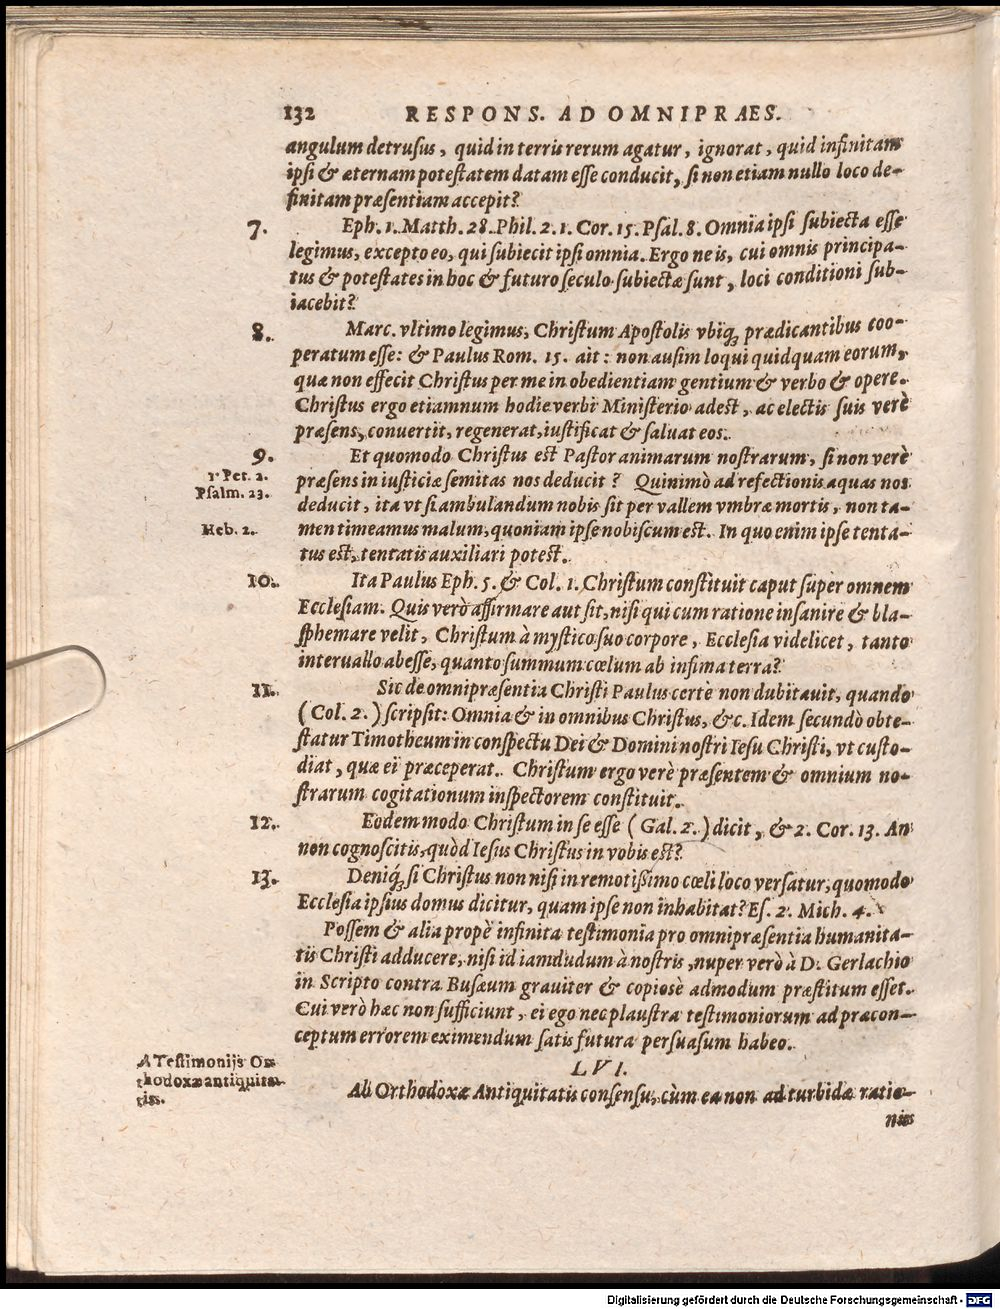 132 RESPONS. AD OMNIPRAES.
angulum detrusus, quid in terris rerum agatur, ignorat, quid infinitam
ipsi & æternam potestatem datam esse conducit, si non etiam nullo loco de-
finitam præsentiam accepit?
7. Eph. 1. Matth. 28. Phil. 2. 1. Cor. 15. Psal. 8. Omnia ipsi subiecta esse
legimus, excepto eo, qui subiecit ipsi omnia. Ergo ne is, cui omnis principa-
tus & potestates in hoc & futuro seculo subiectæ sunt, loci conditioni sub-
iacebit?
8. Marc. vltimo legimus, Christum Apostolis vbiq; prædicantibus coo-
peratum esse: & Paulus Rom. 15. ait: non ausim loqui quidquam eorum,
quæ non effecit Christus per me in obedientiam gentium & verbo & opere.
Christus ergo etiamnum hodie verbi Ministerio adest, ac electis suis verè
præsens, conuertit, regenerat, iustificat & saluat eos.
9. Et quomodo Christus est Pastor animarum nostrarum, si non verè
1 Pet. 2.
præsens in iusticiæ semitas nos deducit? Quinimò ad refectionis aquas nos
Psalm. 23.
deducit, ita vt si ambulandum nobis sit per vallem vmbræ mortis, non ta-
Heb. 2. men timeamus malum, quoniam ipse nobiscum est. In quo enim ipse tenta-
tus est, tentatis auxiliari potest.
10. Ita Paulus Eph. 5. & Col. 1. Christum constituit caput super omnem
Ecclesiam. Quis verò affirmare aut sit, nisi qui cum ratione insanire & bla-
sphemare velit, Christum à mystico suo corpore, Ecclesia videlicet, tanto
interuallo abesse, quanto summum cœlum ab infima terra?
11. Sic de omnipræsentia Christi Paulus certè non dubitauit, quando
(Col. 2.) scripsit: Omnia & in omnibus Christus, &c. Idem secundò obte-
statur Timotheum in conspectu Dei & Domini nostri Iesu Christi, vt custo-
diat, quæ ei præceperat. Christum ergo verè præsentem & omnium no-
strarum cogitationum inspectorem constituit.
12. Eodem modo Christum in se esse (Gal. 2.) dicit, & 2. Cor. 13. An
non cognoscitis, quòd Iesus Christus in vobis est?
13. Deniq; si Christus non nisi in remotißimo cœli loco versatur, quomodo
Ecclesia ipsius domus dicitur, quam ipse non inhabitat? Es. 2. Mich. 4.
Possem & alia propè infinita testimonia pro omnipræsentia humanita-
tis Christi adducere, nisi id iamdudum à nostris, nuper verò à D. Gerlachio
in Scripto contra Busæum grauiter & copiosè admodum præstitum esset.
Cui verò hæc non sufficiunt, ei ego nec plaustra testimoniorum ad præcon-
ceptum errorem eximendum satis futura persuasum habeo.
A Testimonijs Or-
thodoxæ antiquita-
tis.
LVI.
Ab Orthodoxæ Antiquitatis consensu, cùm ea non ad turbidæ ratio-
nis
Digitalisierung gefördert durch die Deutsche Forschungsgemeinschaft - DFG